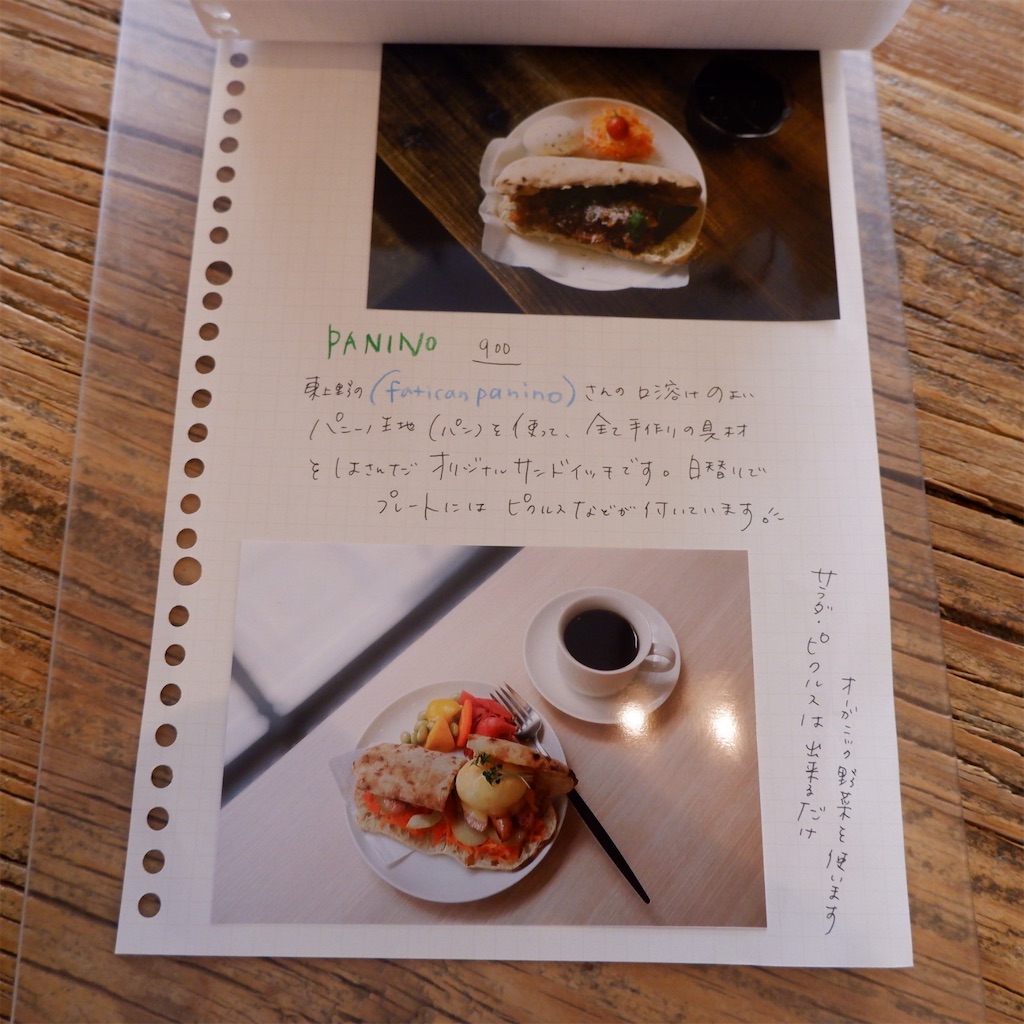 PANINO 900
東上野の(fatican panino)さんの口溶けのよい
パニーノ生地(パン)を使って、全て手作りの具材
をはさんだオリジナルサンドイッチです。日替りで
プレートにはピクルスなどが付いています。
サラダ・ピクルスは出来るだけ
オーガニックの野菜を使います